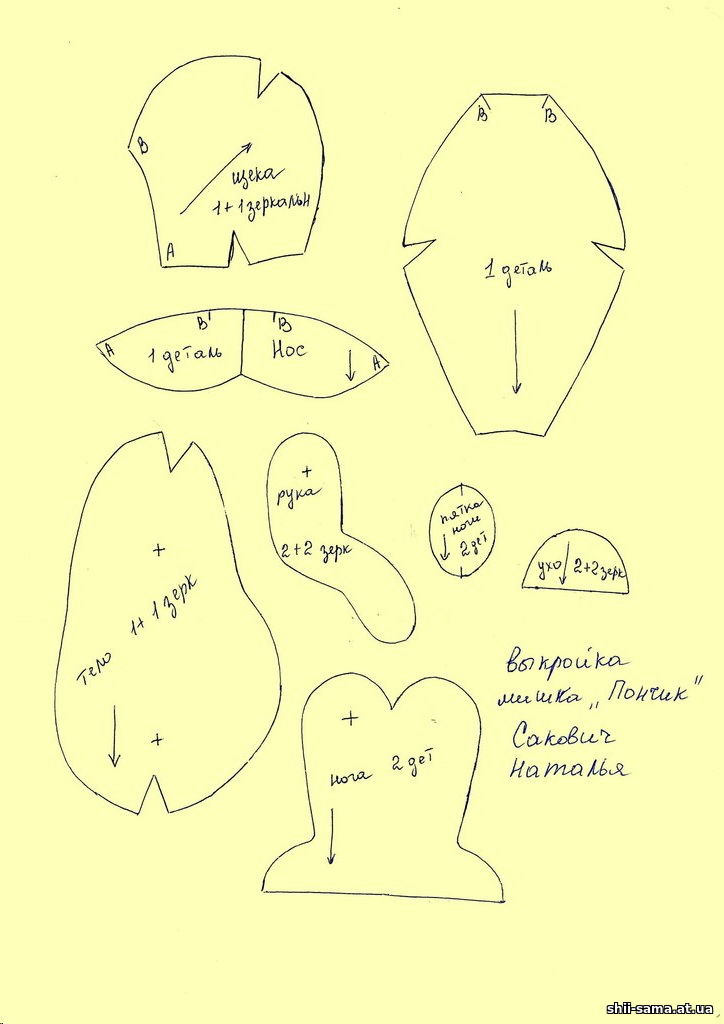 В
щека
1+1 зеркальн
А
В
В
1 деталь
В
В
А
1 деталь
Нос
А
рука
2+2 зерк
пятка
ноги
2 дет
ухо 2+2 зерк
тело 1+1 зерк
нога 2 дет
Выкройка
мишка „Пончик"
Сакович
Наталья
shii-sama.at.ua